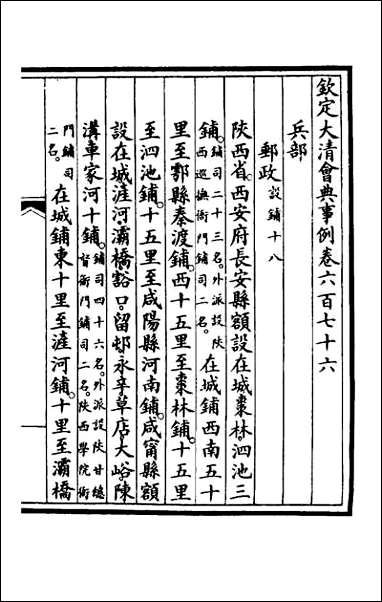 欽定大清會典事例卷六百七十六
兵部
郵政設鋪十八
陝西省西安府長安縣額設在城棗林泗池三
鋪鋪司二十三名。外派設陝西巡撫衙門鋪司二名。在城鋪西南五十
里至鄠縣秦渡鋪。西十五里至棗林鋪。十五里
至泗池鋪。十五里至咸陽縣河南鋪。咸甯縣額
設在城滻河灞橋豁口。留邨永辛草店。大峪陳
溝車家河十鋪。鋪司四十六名。外派設陝甘總督衙門鋪司二名。陝西學院衙
門鋪司二名。在城鋪東十里至滻河鋪。十里至灞橋